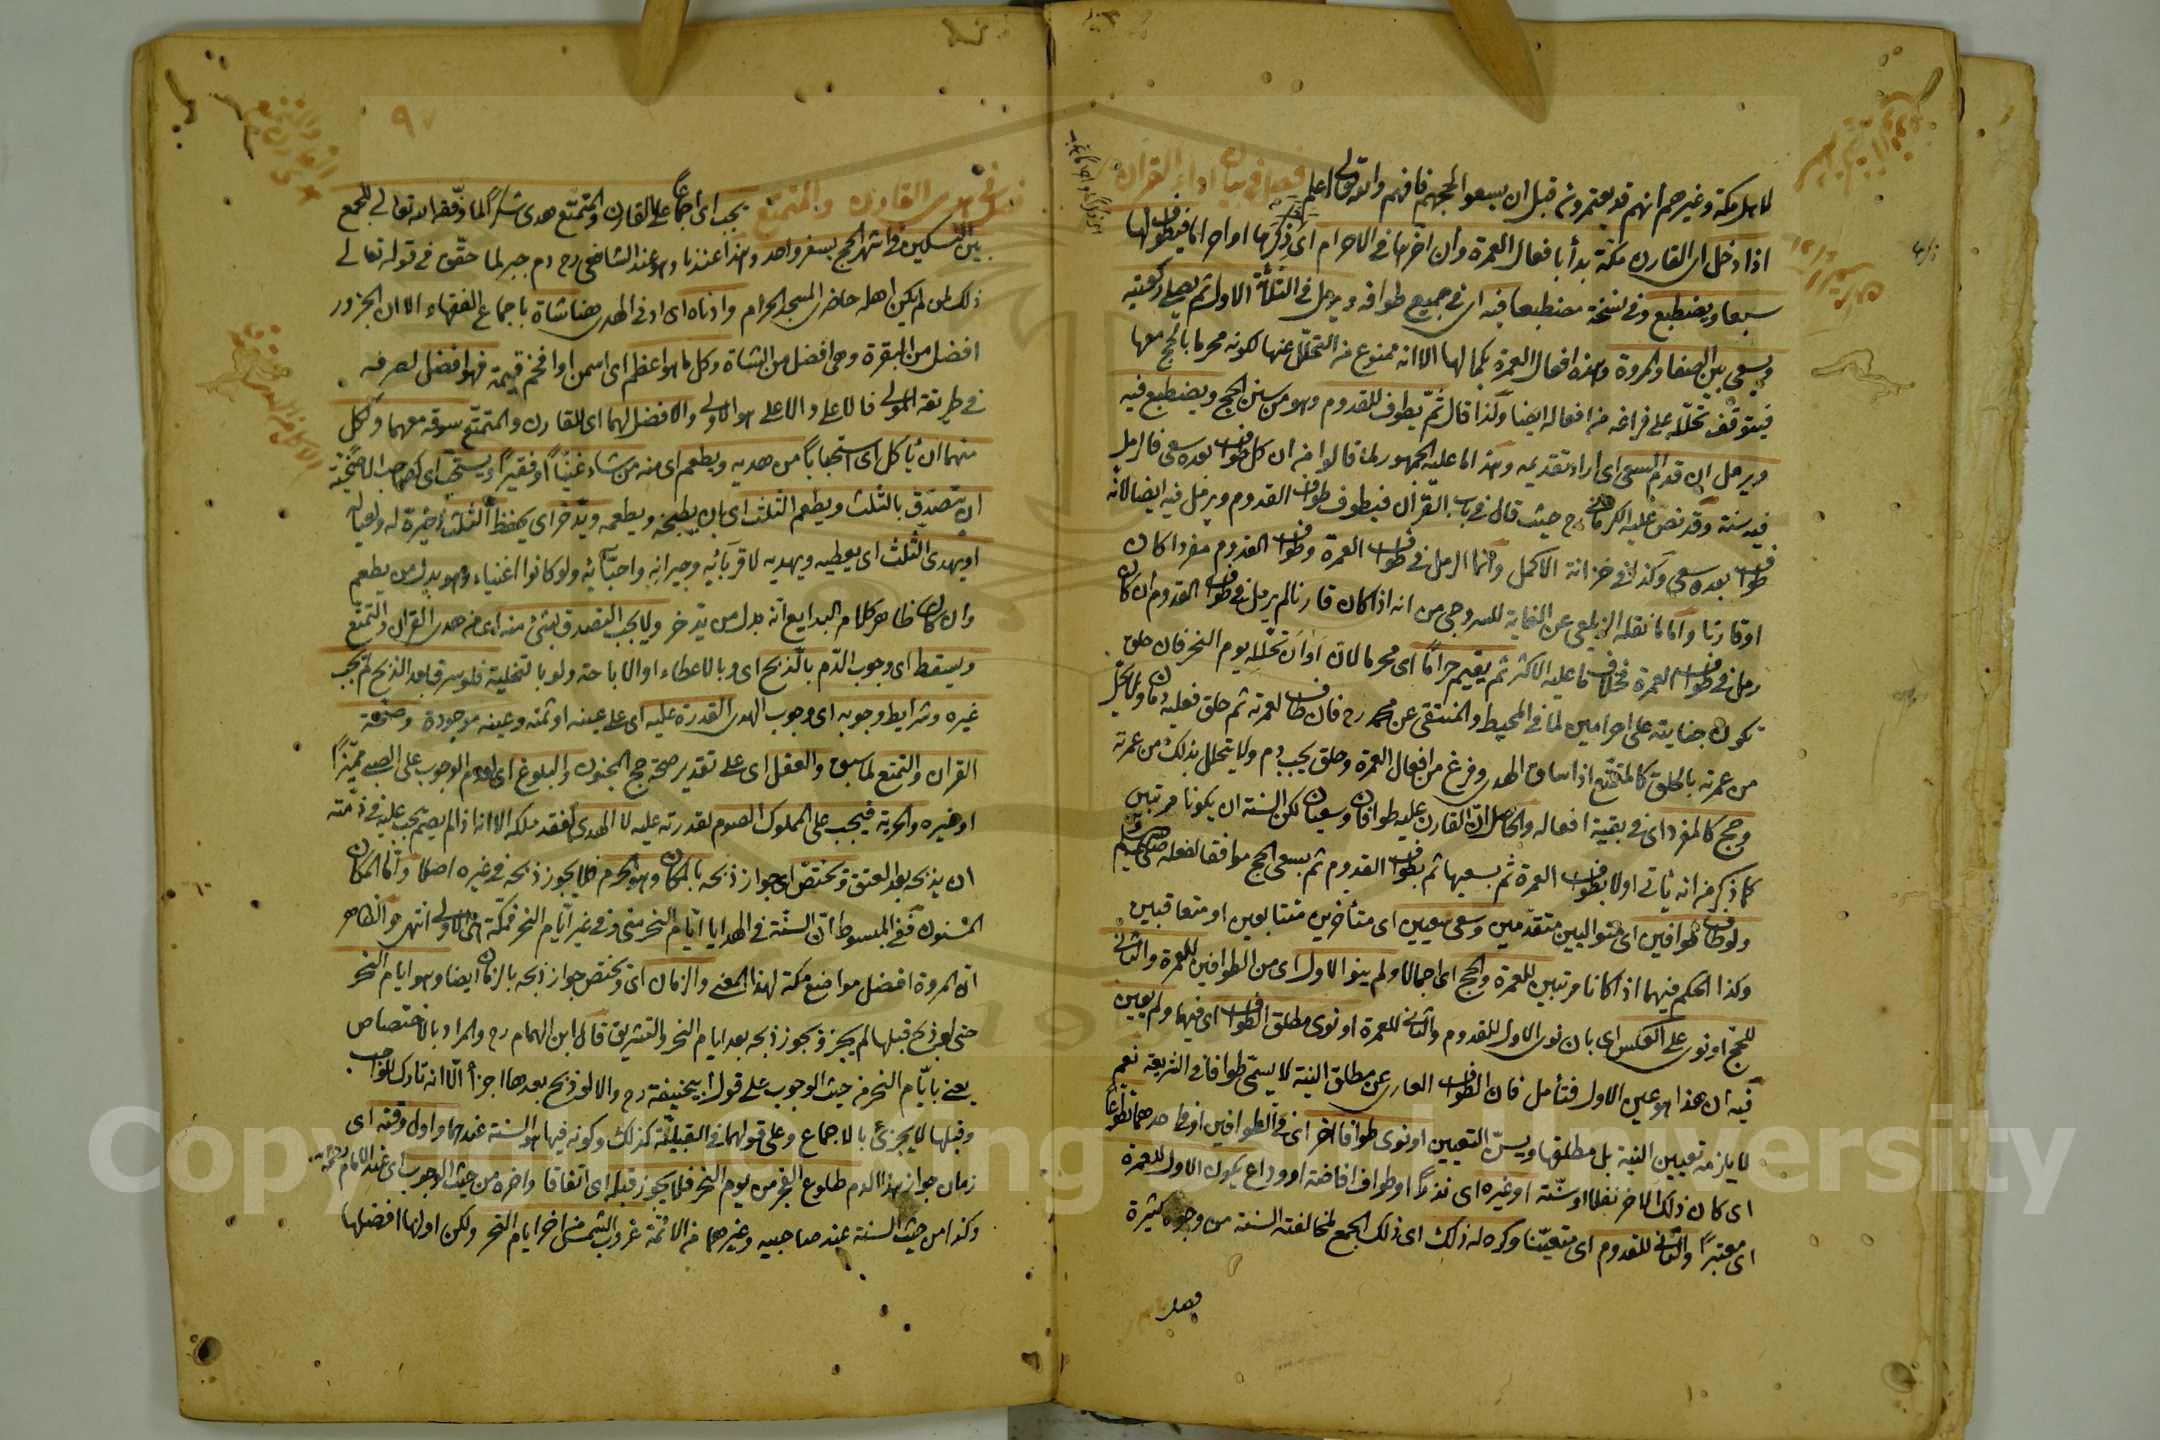 لاهل مكة وغيرهم انهم قد يعتمرون قبل ان يسعوا لحجهم فافهم والله تعالى اعلم فصل في بيان اداء القران
اذا دخل اى القارن مكة بدأ بافعال العمرة وان اخرها في الاحرام اى ذكرها او احراما فيطوف لها
سبعا ويضطبع وفي نسخة مضطبعا فيه اى في جميع طوافه ويرمل في الثلثة الاول ثم يصلى ركعتيه
ويسعى بين الصفا والمروة وهذه افعال العمرة بكمالها الا انه ممنوع من التحلل عنها لكونه محرما بالحج معها
فيتوقف تحلله على فراغه من افعاله ايضا ولذا قال ثم يطوف للقدوم وهو من سنن الحج ويضطبع فيه
ويرمل ان قدم السعى اى اراد تقديمه وهذا ما عليه الجمهور لما قالوا من ان كل طواف بعده سعى فالرمل
فيه سنة وقد نص عليه الكرماني رح حيث قال في باب القران فيطوف طواف القدوم ويرمل فيه ايضا لانه
طواف بعده سعى وكذا في خزانة الاكمل وانما الرمل في طواف العمرة وطواف القدوم مفردا كان
او قارنا واما ما نقله الزيلعى عن الغاية للسروجى من انه اذا كان قارنا لم يرمل في طواف القدوم ان كان
رمل في طواف العمرة فخلاف ما عليه الاكثر ثم يقيم حراما اى محرما لان اوان تحلله يوم النحر فان حلق
تكون جنايته على احرامين لما في المحيط والمنتقى عن محمد رح فان طاف لعمرته ثم حلق فعليه دمان ولا يحل
من عمرته بالحلق كالمتمتع اذا ساق الهدى وفرغ من افعال العمرة وحلق يجب دم ولا يتحلل بذلك من عمرته
وحج كالمفرد اى في بقية افعاله والحاصل ان القارن عليه طوافان وسعيان لكن السنة ان يكونا مرتبين
كما ذكر من انه يأتى اولا بطواف العمرة ثم بسعيها ثم بطواف القدوم ثم بسعى الحج موافقا لفعله صلى الله عليه وسلم
ولو طاف طوافين اى متواليين متقدمين وسعى سعيين اى متأخرين متتابعين او متعاقبين
وكذا الحكم فيهما اذا كانا مرتبين للعمرة والحج اى اجمالا ولم ينو الاول اى من الطوافين للعمرة والثانى
للحج او نوى على العكس اى بان نوى الاول للقدوم والثانى للعمرة او نوى مطلق الطواف اى فيهما ولم يعين
فيه ان هذا هو عين الاول فتأمل فان الطواف العارى عن مطلق النية لا يسمى طوافا في الشريعة نعم
لا يلزمه تعيين النية بل مطلقها ويسن التعيين او نوى طوافا اخر اى في الطوافين او في احدهما تطوعا
اى كان ذلك الاخر نفلا او سنة او غيره اى نذرا او طواف افاضة او وداع يكون الاول للعمرة
اى معتبرا والثانى للقدوم اى متعينا وكره له ذلك اى ذلك الجمع لمخالفته السنة من وجوه كثيرة
فصل
٩٧
فصل في هدى القارن والمتمتع يجب اى اجماعا على القارن والمتمتع هدى شكرا لما وفقه الله تعالى للجمع
بين النسكين في اشهر الحج بسفر واحد وهذا عندنا وهو عند الشافعى رح دم جبر لما حقق في قوله تعالى
ذلك لمن لم يكن اهله حاضرى المسجد الحرام وادناه اى ادنى الهدى هنا شاة باجماع الفقهاء الا ان الجزور
افضل من البقرة وهى افضل من الشاة وكل ما هو اعظم اى اسمن او افخم قيمة فهو افضل لصرفه
في طريقة المولى فالاعلى والاعلى هو الاولى والافضل لهما اى للقارن والمتمتع سوقه معهما ولكل
منهما ان يأكل اى استحبابا من هديه ويطعم اى منه من شاء غنيا او فقيرا ويستحب اى لصاحب الاضحية
ان يتصدق بالثلث ويطعم الثلث اى بان يطبخه ويطعمه ويدخر اى يحفظ الثلث ذخيرة له ولعياله
او يهدى الثلث اى يعطيه ويهديه لاقربائه وجيرانه واحبائه ولو كانوا اغنياء وهو بدل من يطعم
وان كان ظاهر كلام البدايع انه بدل من يدخر ولا يجب التصدق بشئ منه اى من هدى القران والتمتع
ويسقط اى وجوب الدم بالذبح اى وبالاعطاء او الاباحة ولو بالتخلية فلو سرق بعد الذبح لم يجب
غيره وشرايط وجوبه اى وجوب الهدى القدرة عليه اى على عينه او ثمنه وعينه موجودة وصحة
القران والتمتع لما سبق والعقل اى على تقدير صحة حج المجنون والبلوغ اى لعدم الوجوب على الصبى مميزا
او غيره والحرية فيجب على المملوك الصوم لقدرته عليه لا الهدى لفقد ملكه الا انه اذا لم يصم يجب عليه في ذمته
ان يذبحه بعد العتق ويختص اى جواز ذبحه بالمكان وهو الحرم فلا يجوز ذبحه في غيره اصلا واما المكان
المسنون ففى المبسوط ان السنة في الهدايا ايام النحر منى وفي غير ايام النحر فمكة هى الاولى انتهى والظاهر
ان المروة افضل مواضع مكة لهذا المعنى والزمان اى ويختص جواز ذبحه بالزمان ايضا وهو ايام النحر
حتى لو ذبح قبلها لم يجز ويجوز ذبحه بعد ايام النحر والتشريق قال ابن الهمام رح والمراد بالاختصاص
يعنى بايام النحر من حيث الوجوب على قول ابي حنيفة رح والا لو ذبح بعدها اجزأ الا انه تارك للواجب
وقبلها لا يجزئ بالاجماع وعلى قولهما في القبلية كذلك وكونه فيها هو السنة عندهما واول وقته اى
زمان جواز هذا الدم طلوع الفجر من يوم النحر فلا يجوز قبله اى اتفاقا واخره من حيث الوجوب اى عند الامام رحمه الله
وكذا من حيث السنة عند صاحبيه وغيرهما من الائمة غروب الشمس من اخر ايام النحر ولكن اولها افضلها
Copyright © King Saud University